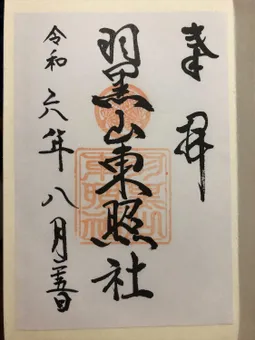 奉拝
羽黒山東照社
令和六年八月 日